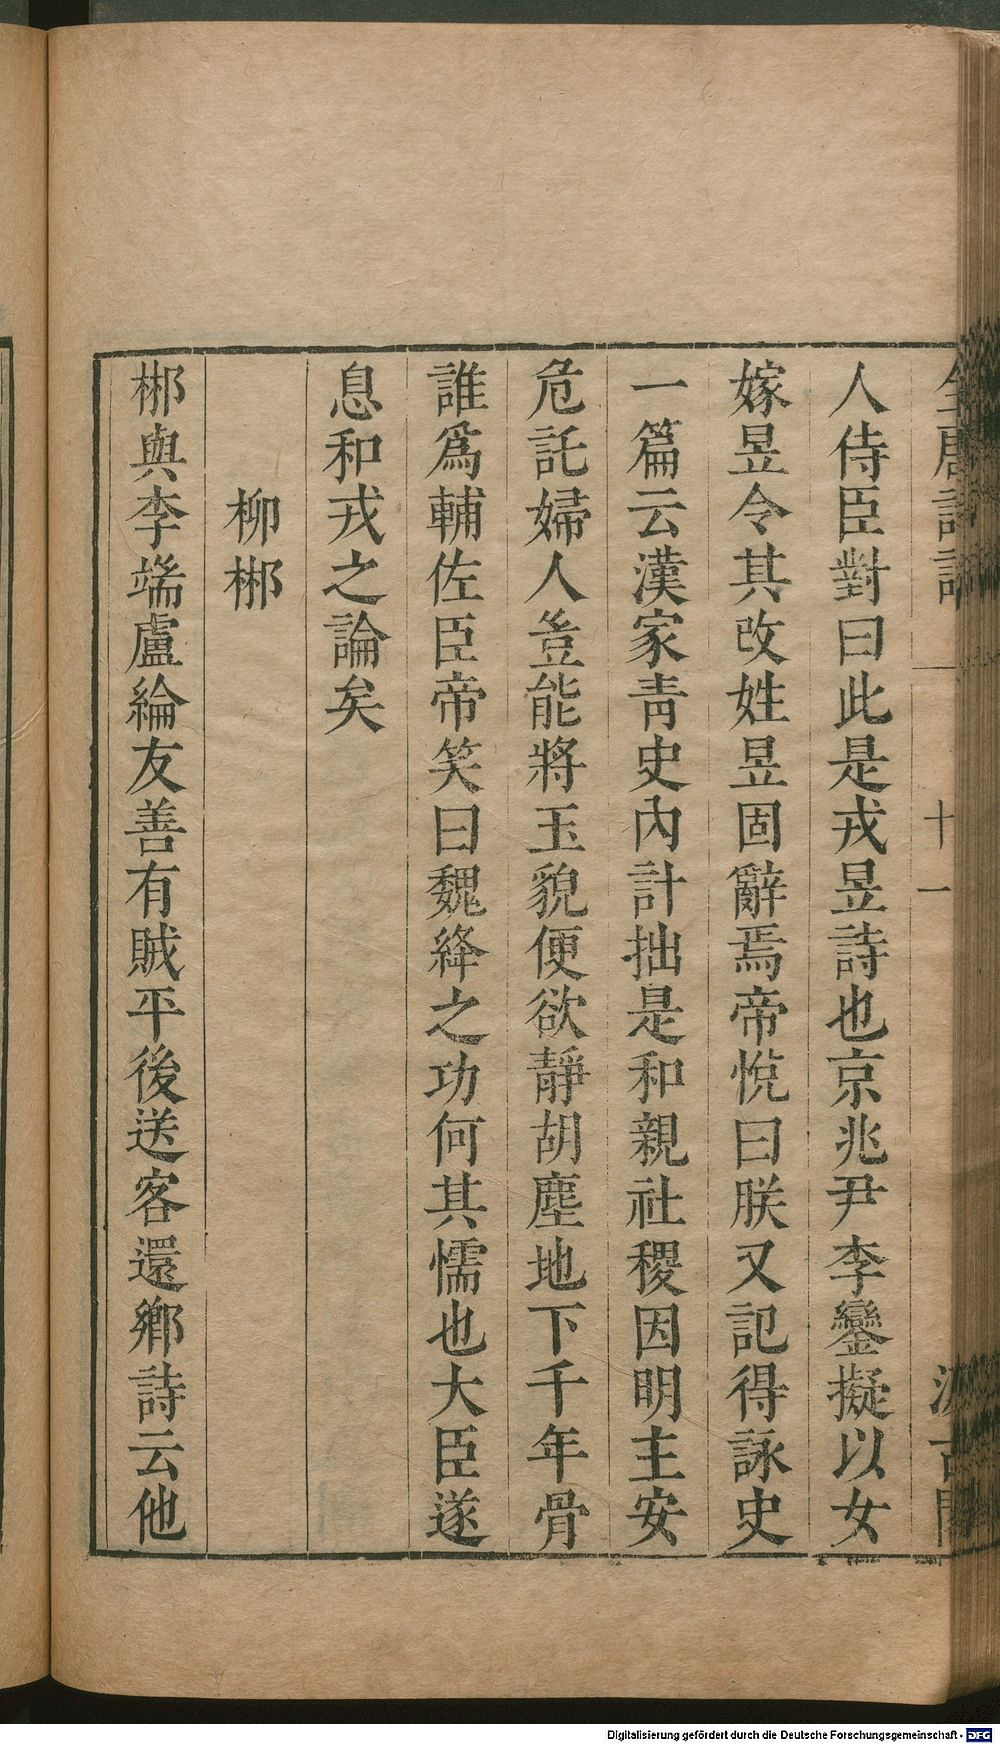 全唐詩話 十一 汲古閣
人侍臣對曰此是戎昱詩也京兆尹李鑾擬以女
嫁昱令其改姓昱固辭焉帝悅曰朕又記得詠史
一篇云漢家靑史內計拙是和親社稷因明主安
危託婦人豈能將玉貌便欲靜胡塵地下千年骨
誰爲輔佐臣帝笑曰魏絳之功何其懦也大臣遂
息和戎之論矣
柳郴
郴與李端盧綸友善有賊平後送客還鄉詩云他
Digitalisierung gefördert durch die Deutsche Forschungsgemeinschaft - DFG